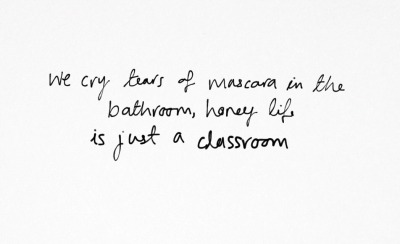 We cry tears of mascara in the
bathroom, honey life
is just a classroom